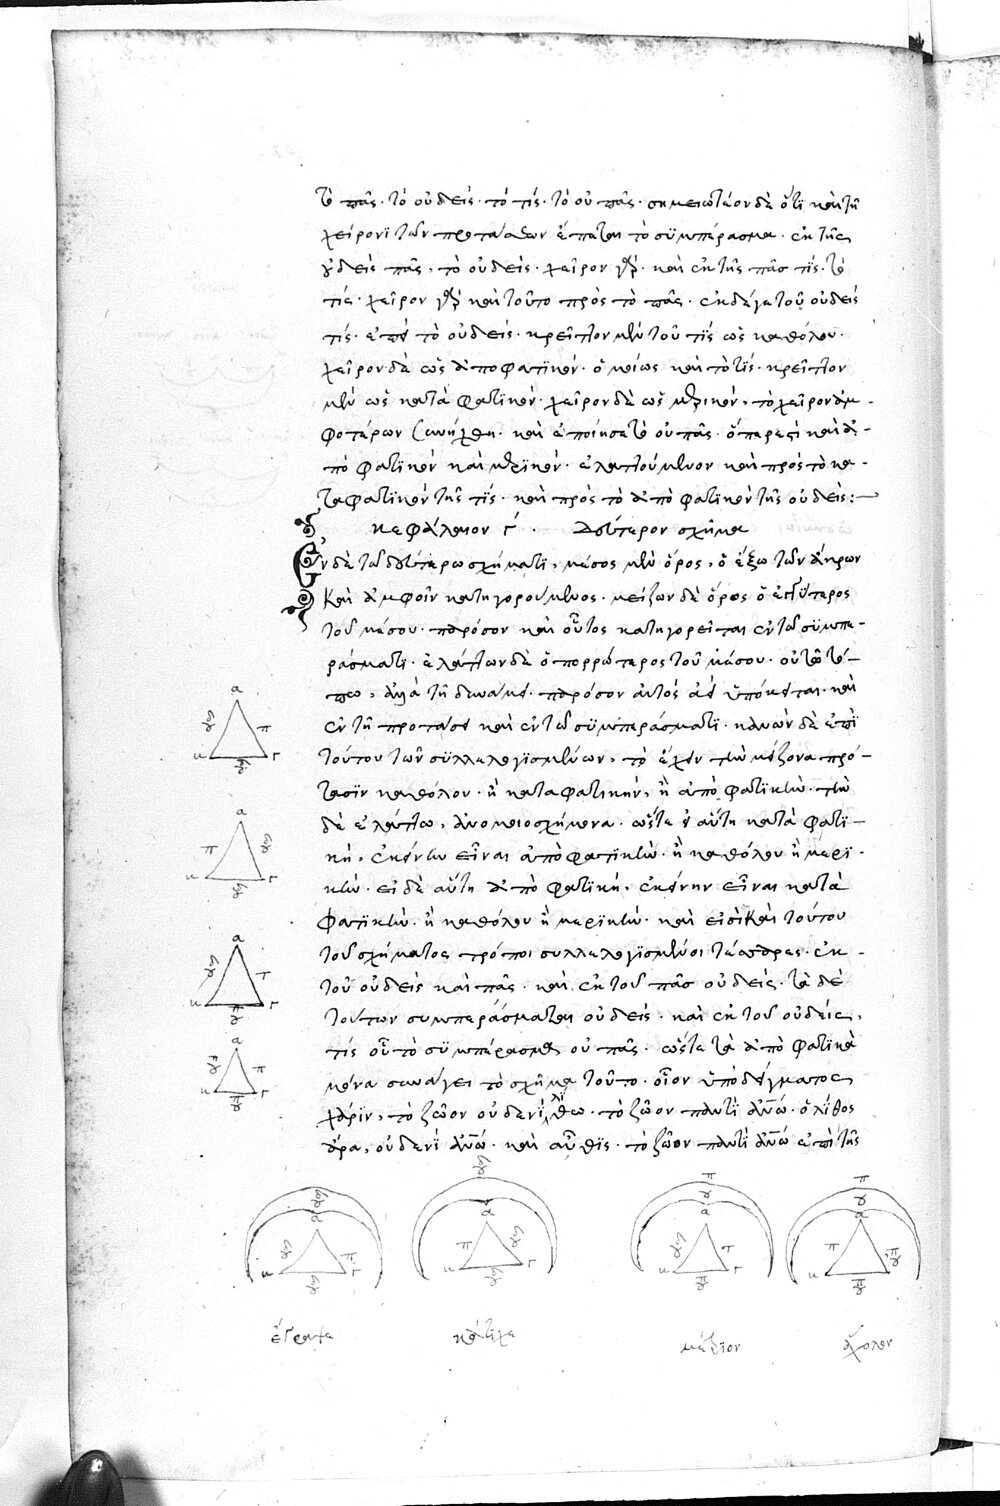 τὸ πᾶς· τὸ οὐδείς· τὸ τίς· τὸ οὐ πᾶς· σημειωτέον δὲ ὅτι καὶ τῇ
χείρονι τῶν προτάσεων ἕπεται τὸ συμπέρασμα· ἐκ τῆς
οὐδεὶς πᾶς, τὸ οὐδείς· χεῖρον γάρ· καὶ ἐκ τῆς πᾶσ τίς· τὸ
τίς· χεῖρον γὰρ καὶ τοῦτο πρὸς τὸ πᾶς· ἐκ δέ γε τοῦ οὐδεὶς
τίς· ἐπεὶ τὸ οὐδείς· κρεῖττον μὲν τοῦ τίς ὡς καθόλου·
χεῖρον δὲ ὡς ἀποφατικόν· ὁμοίως καὶ τὸ τίς· κρεῖττον
μὲν ὡς καταφατικόν· χεῖρον δὲ ὡς μερικόν, τὸ χεῖρον ἀμ-
φοτέρων συνήχθη· καὶ ἐποίησε τὸ οὐ πᾶς· ὅπερ ἐστὶ καὶ ἀ-
ποφατικὸν καὶ μερικόν· ἐλαττούμενον καὶ πρὸς τὸ κα-
ταφατικὸν τῆς τίς· καὶ πρὸς τὸ ἀποφατικὸν τῆς οὐδείς:—
κεφάλαιον γ΄· Δεύτερον σχῆμα
Ἐν δὲ τῷ δευτέρῳ σχήματι, μέσος μὲν ὅρος, ὁ ἔξω τῶν ἄκρων
καὶ ἀμφοῖν κατηγορούμενος· μείζων δὲ ὅρος ὁ ἐγγύτερος
τοῦ μέσου· παρόσον καὶ οὗτος κατηγορεῖται ἐν τῷ συμπε-
ράσματι· ἐλάττων δὲ ὁ πορρώτερος τοῦ μέσου· οὐ τῷ τό-
πῳ, ἀλλὰ τῇ δυνάμει· παρόσον αὐτὸς ἀεὶ ὑπόκειται· καὶ
ἐν τῇ προτάσει καὶ ἐν τῷ συμπεράσματι· κανὼν δὲ ἐπὶ
τούτου τῶν συλλελογισμένων, τὸ ἔχειν τὴν μείζονα πρό-
τασιν καθόλου· ἢ καταφατικήν, ἢ ἀποφατικήν· τὴν
δὲ ἐλάττω, ἀνομοιοσχήμονα· ὥστε εἰ αὕτη καταφατι-
κή, ἐκείνην εἶναι ἀποφατικήν· ἢ καθόλου ἢ μερι-
κήν· εἰ δὲ αὕτη ἀποφατική, ἐκείνην εἶναι κατα
φατικήν· ἢ καθόλου ἢ μερικήν· καὶ εἰσὶ καὶ τούτου
τοῦ σχήματος τρόποι συλλελογισμένοι τέσσαρες· ἐκ
τοῦ οὐδεὶς καὶ πᾶς· καὶ ἐκ τοῦ πᾶσ οὐδείς· τὰ δὲ
τούτων συμπεράσματα οὐδείς· καὶ ἐκ τοῦ οὐδείς,
τίς οὗ τὸ συμπέρασμα οὐ πᾶς· ὥστε τὰ ἀποφατικὰ
μόνα συνάγει τὸ σχῆμα τοῦτο· οἷον ὑποδείγματος
χάριν, τὸ ζῶον οὐδενὶ λίθω· τὸ ζῶον παντὶ ἀνῶ· ὁ λίθος
ἄρα, οὐδενὶ ἀνῶ· καὶ αὖθις· τὸ ζῶον παντὶ ἀνῶ ἐπὶ τῆς
ἔγραψε
κάτεχε
μέτριον
ἄχολον